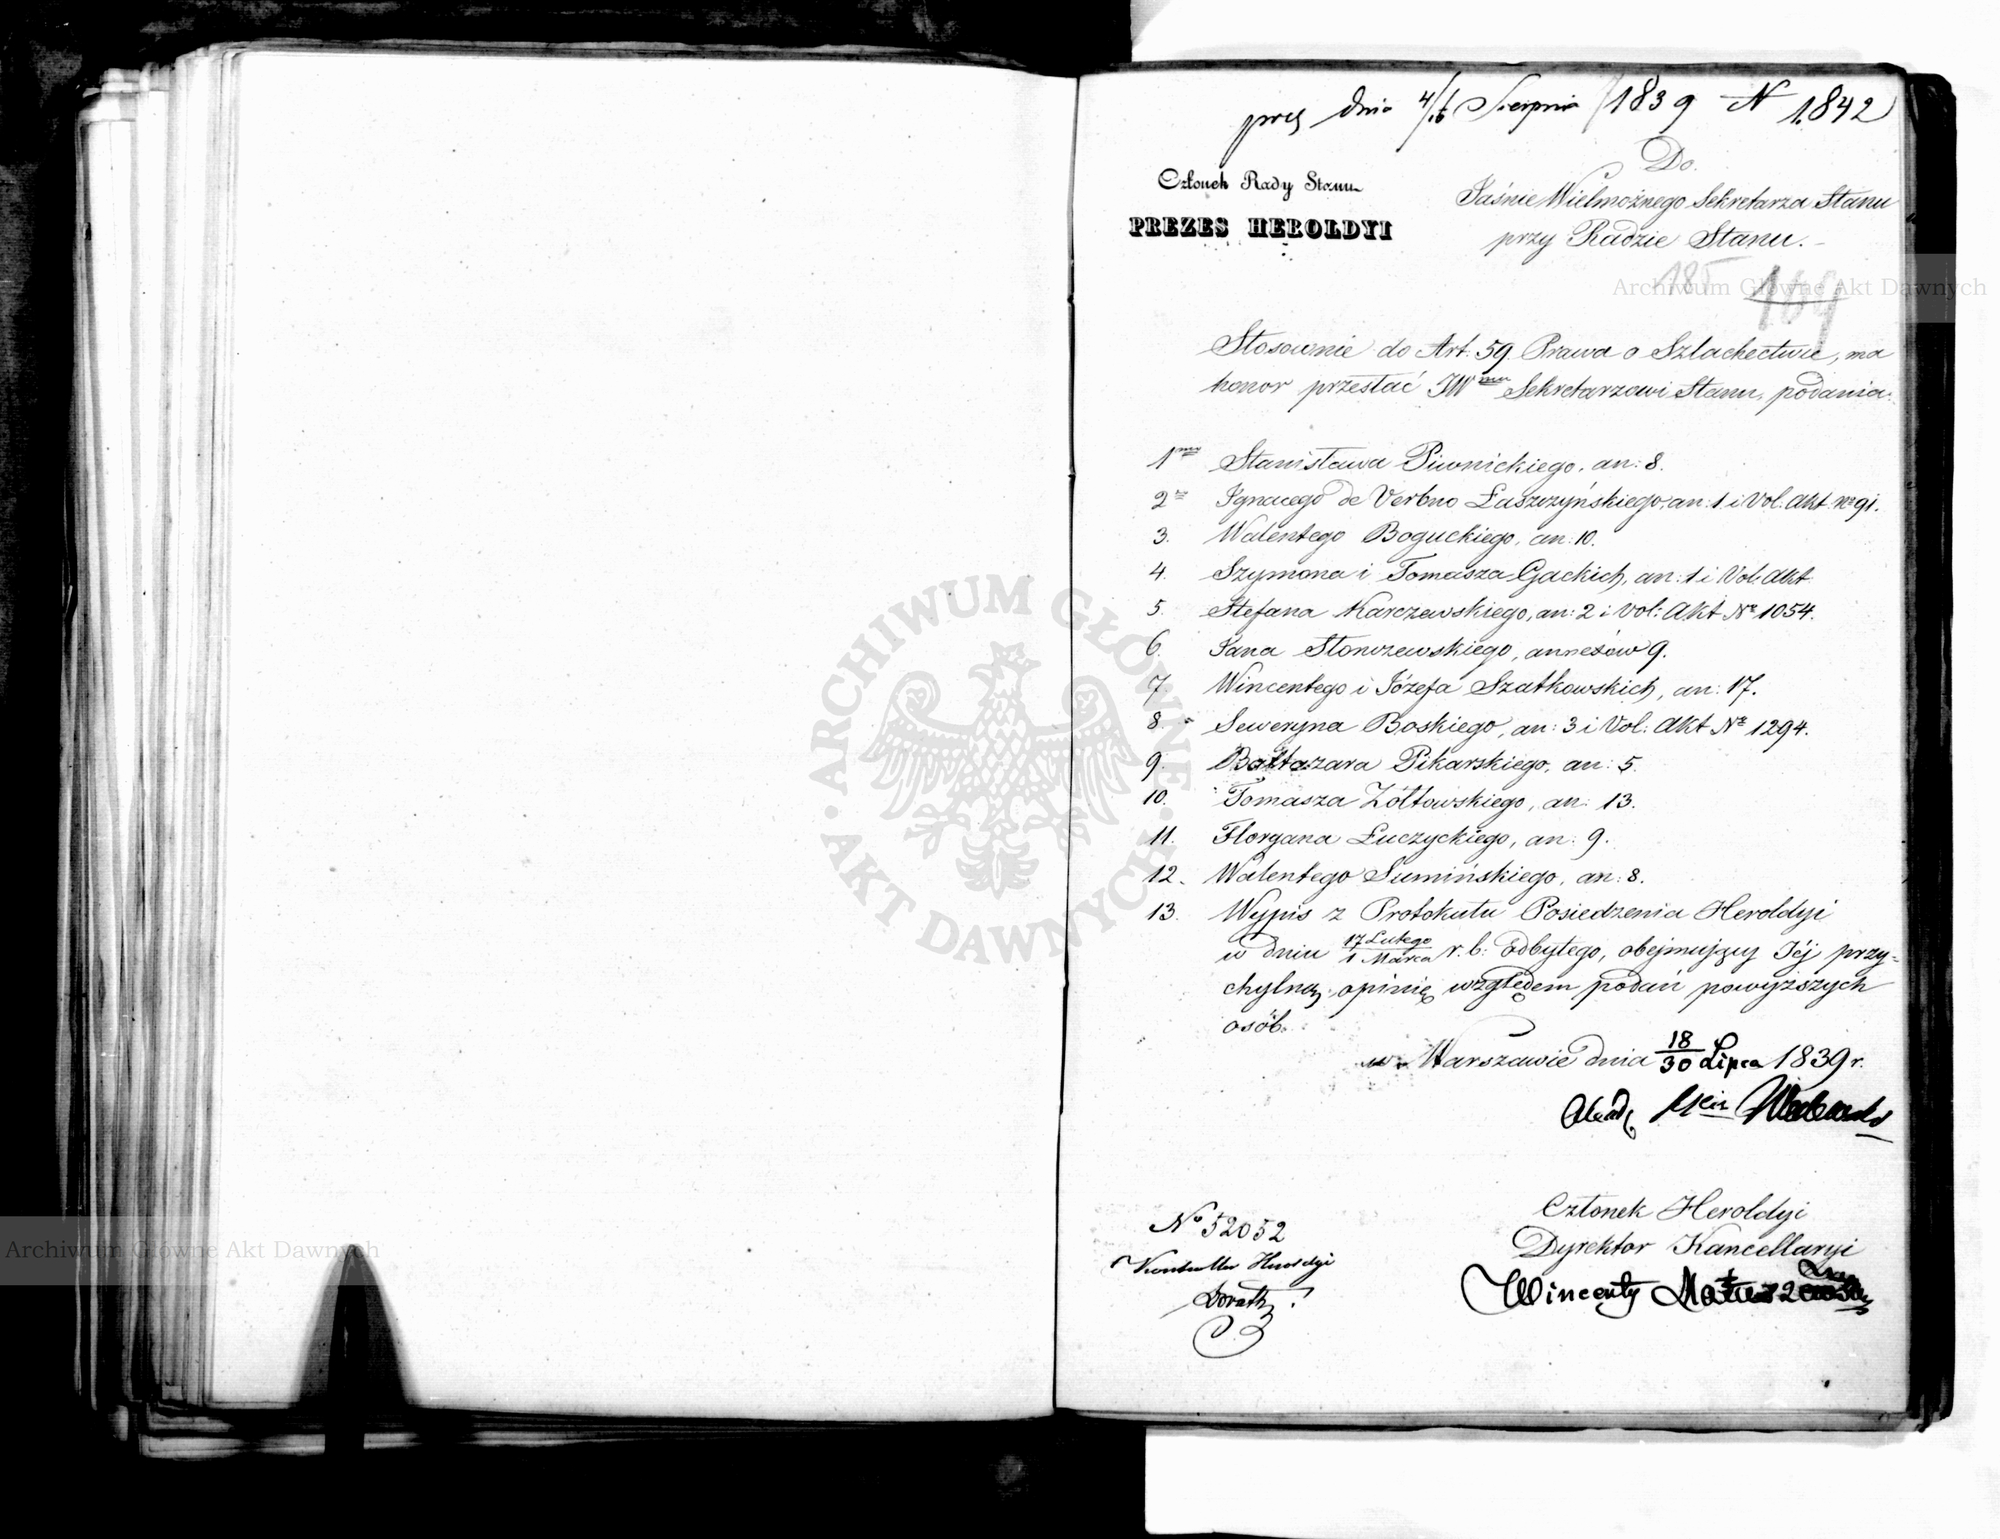 prez dnia 4/16 Sierpnia 1839 N 1842
Członek Rady Stanu
PREZES HEROLDYI
Do
Jaśnie Wielmożnego Sekretarza Stanu
przy Radzie Stanu.
185
169
Stosownie do Art. 59 Prawa o Szlachectwie, ma
honor przesłać JWmu Sekretarzowi Stanu, podania:
1mo Stanisława Piwnickiego, an: 8.
2do Ignacego de Verbno Łaszczyńskiego, an: 1 i Vol: Akt: No 91.
3. Walentego Boguckiego, an: 10.
4. Szymona i Tomasza Gackich, an: 1 i Vol: Akt.
5. Stefana Karczewskiego, an: 2 i Vol: Akt No 1054.
6. Jana Słonczewskiego, annexów 9.
7. Wincentego i Józefa Szatkowskich, an: 17.
8. Seweryna Boskiego, an: 3 i Vol: Akt No 1294.
9. Baltazara Pikarskiego, an: 5.
10. Tomasza Żółtowskiego, an: 13.
11. Floryana Łuczyckiego, an: 9.
12. Walentego Sumińskiego, an: 8.
13. Wypis z Protokułu Posiedzenia Heroldyi
w dniu 17 Lutego / 1 Marca r. b. odbytego, obejmujący Jéj przy=
chylną opinię względem podań powyższych
osób.
w Warszawie dnia 18/30 Lipca 1839 r.
No 52052
Kontroller Heroldyi
Członek Heroldyi
Dyrektor Kancellaryi
Wincenty
ARCHIWUM GŁÓWNE AKT DAWNYCH
Archiwum Główne Akt Dawnych
Archiwum Główne Akt Dawnych